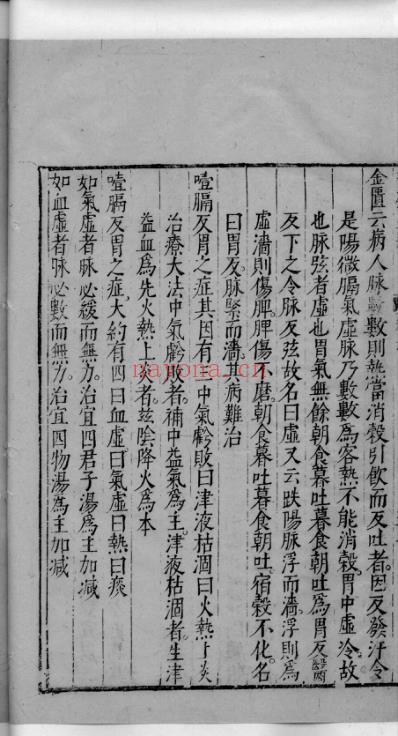 金匱云病人脉數數則熱當消穀引飲而反吐者因反發汗令
是陽微膈氣虛脉乃數數爲客熱不能消穀胃中虛冷故
也脉弦者虛也胃氣無餘朝食暮吐暮食朝吐爲胃反醫
反下之令脉反弦故名曰虛又云趺陽脉浮而濇浮則爲
虛濇則傷脾脾傷不磨朝食暮吐暮食朝吐宿穀不化名
曰胃反脉緊而濇其病難治
噎膈反胃之症其因有三曰中氣虧敗曰津液枯涸曰火熱上炎
治療大法中氣虧者補中益氣爲主津液枯涸者生津
益血爲先火熱上炎者玆陰降火爲本
噎膈反胃之症大約有四曰血虛曰氣虛曰熱曰痰
如氣虛者脉必緩而無力治宜四君子湯爲主加減
如血虛者脉必數而無力治宜四物湯爲主加減
nayona.cn